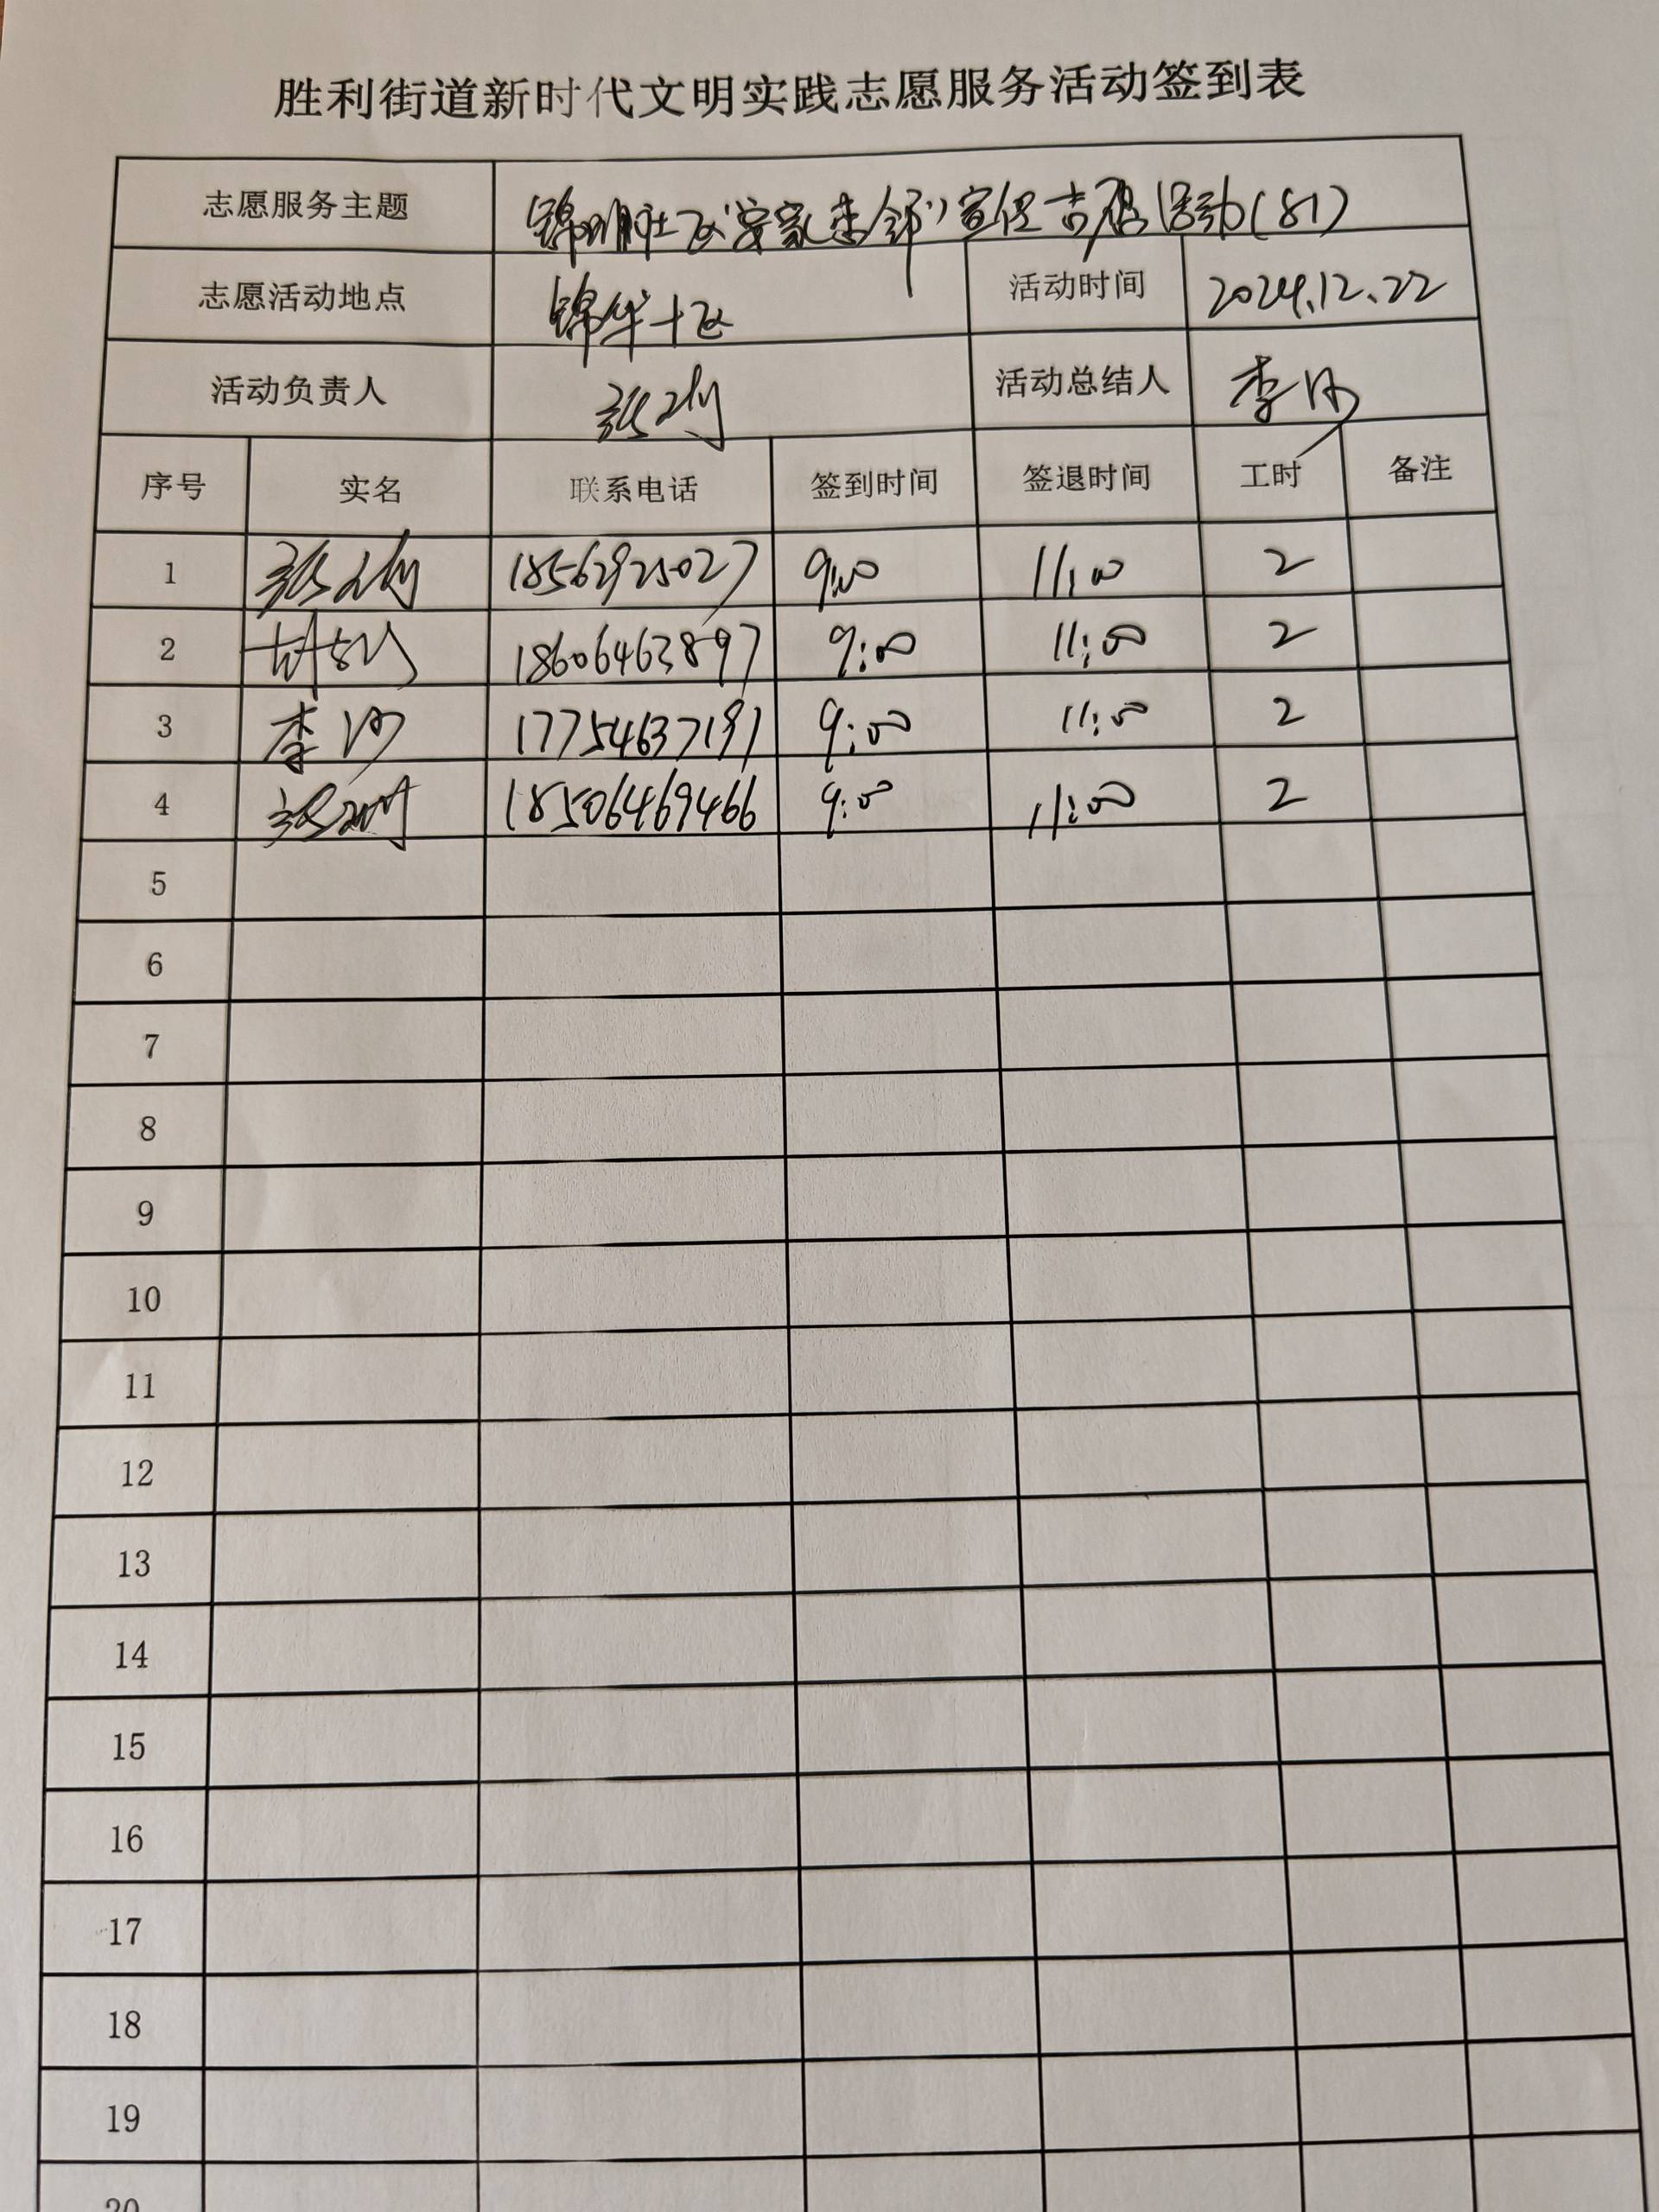 胜利街道新时代文明实践志愿服务活动签到表
志愿服务主题 锦 社区"安家 邻" 活动(81)
志愿活动地点 锦华十区 活动时间 2024.12.22
活动负责人 张 活动总结人 李
序号 实名 联系电话 签到时间 签退时间 工时 备注
1 张 18562925027 9:00 11:00 2
2 胡 18606463897 9:00 11:00 2
3 李 17754637191 9:00 11:00 2
4 18506469466 9:00 11:00 2
5
6
7
8
9
10
11
12
13
14
15
16
17
18
19
20